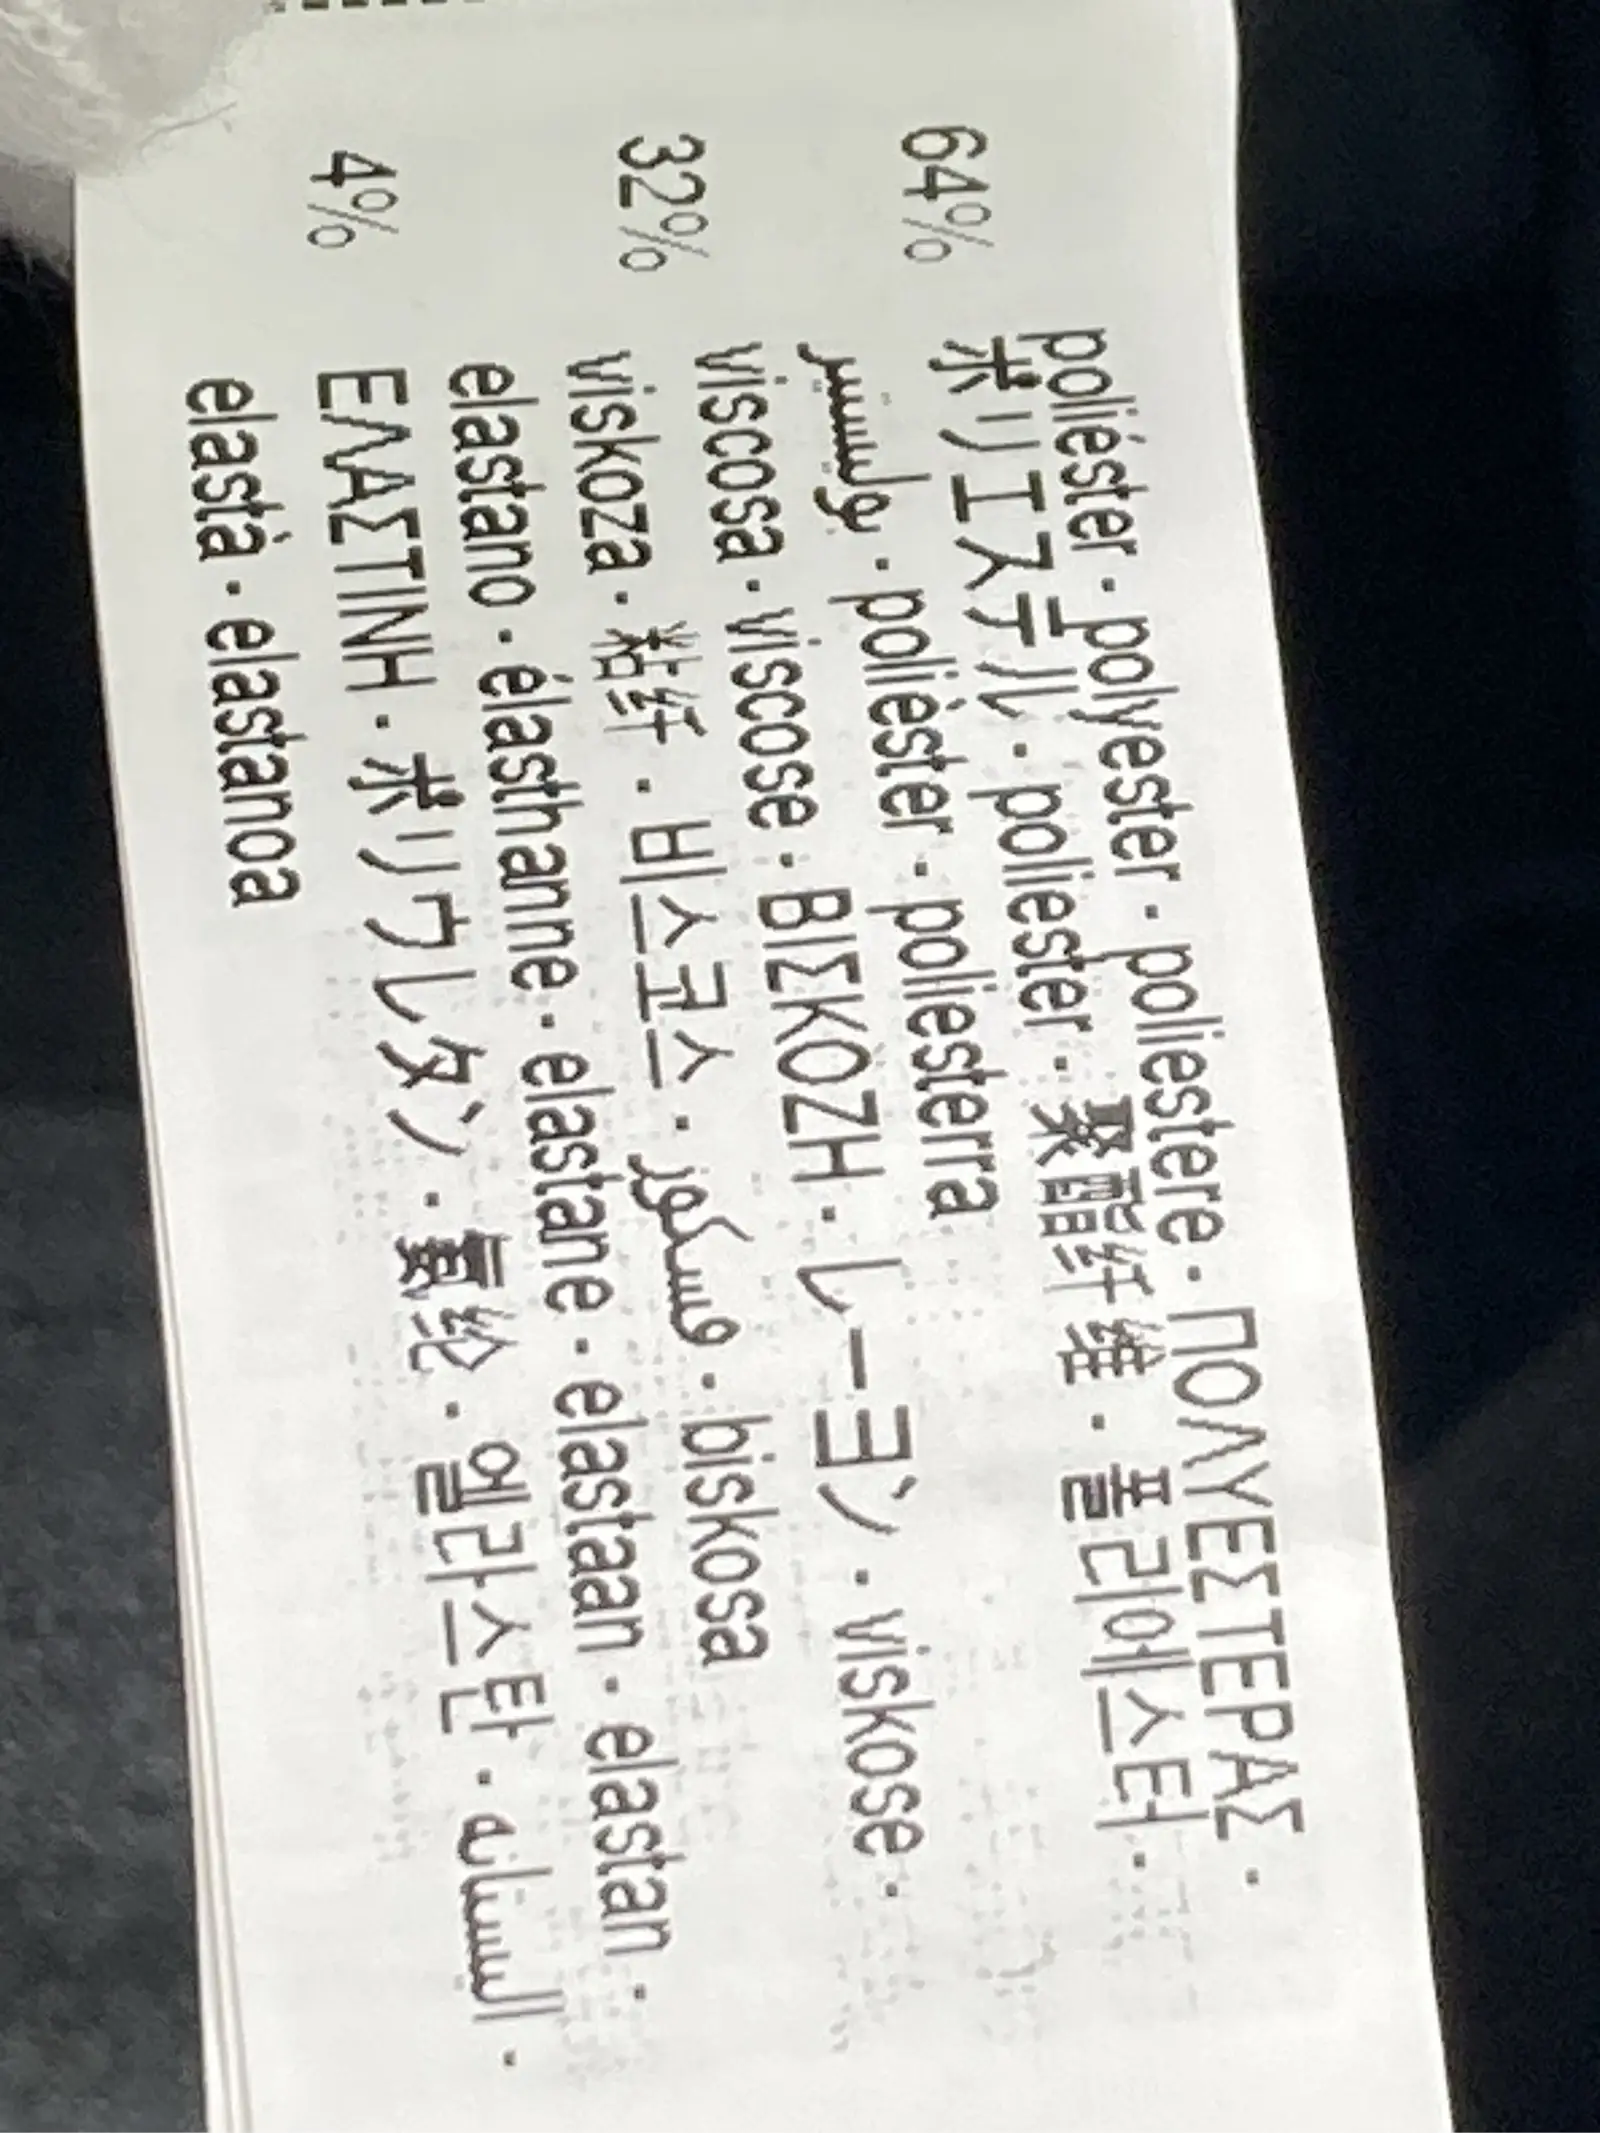 poliéster · polyester · poliestere · ΠΟΛΥΕΣΤΕΡΑΣ ·
64% ポリエステル · poliester · 聚酯纤维 · 폴리에스터 ·
بوليستير · polièster · poliesterra
viscosa · viscose · ΒΙΣΚΟΖΗ · レーヨン · viskose ·
32% viskoza · 粘纤 · 비스코스 · فسكوز · biskosa
elastano · élasthanne · elastane · elastaan · elastan ·
4% ΕΛΑΣΤΙΝΗ · ポリウレタン · 氨纶 · 엘라스탄 · الستان ·
elastà · elastanoa